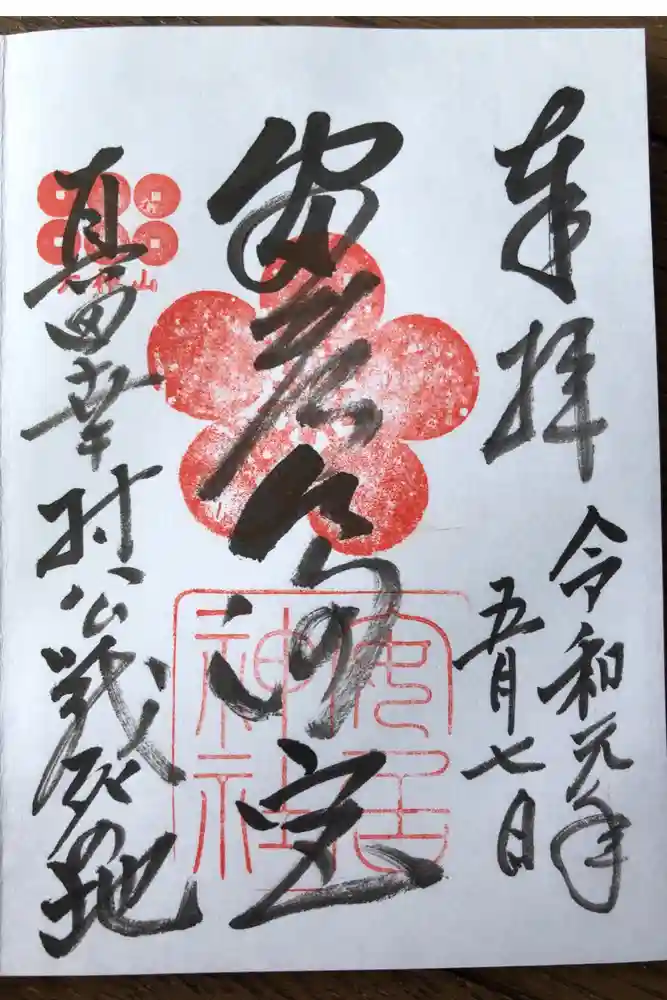 奉拝
令和元年
五月七日
安居
安居
神社
真田幸村公戦死の地